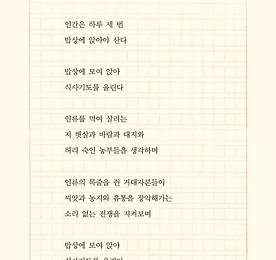 인간은 하루 세 번
밥상에 앉아야 산다
밥상에 모여 앉아
식사기도를 올린다
인류를 먹여 살리는
저 햇살과 바람과 대지와
허리 숙인 농부들을 생각하며
인류의 목줄을 쥔 거대자본들이
씨앗과 농지와 유통을 장악해가는
소리 없는 전쟁을 지켜보며
밥상에 모여 앉아